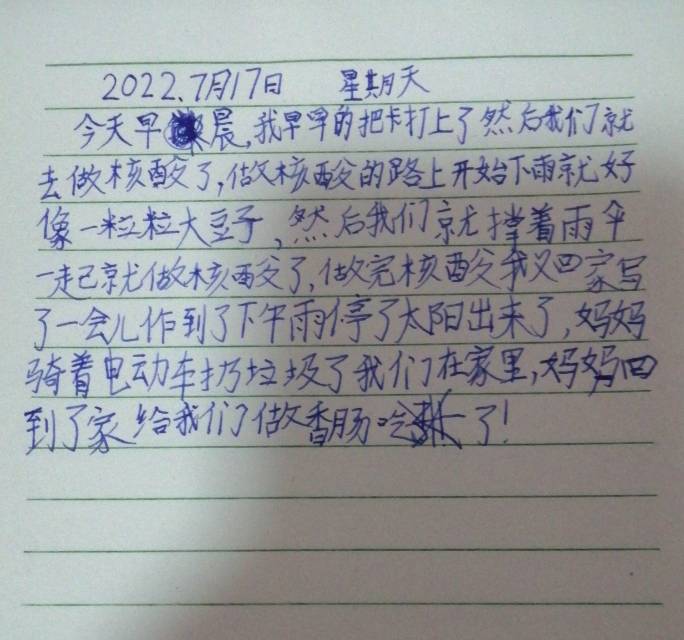 2022、7月17日 星期天
今天早晨,我早早的把卡打上了然后我们就
去做核酸了,做核酸的路上开始下雨就好
像一粒粒大豆子,然后我们就撑着雨伞
一起就做核酸了,做完核酸我又回家写
了一会儿作到了下午雨停了太阳出来了,妈妈
骑着电动车扔垃圾了我们在家里,妈妈回
到了家给我们做香肠吃了!